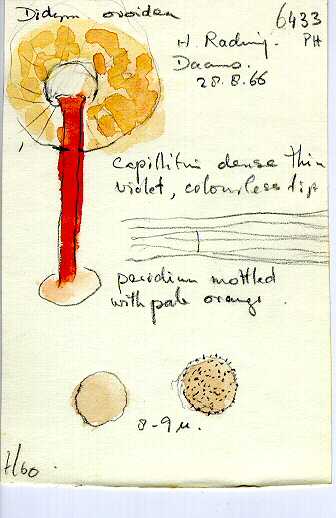 Didym ovoideu
6433
PH
H. Rading.
28.8.66
capillitiu dense thin
violet, colourless tip
peridium mottled
with pale orange.
8-9 µ.